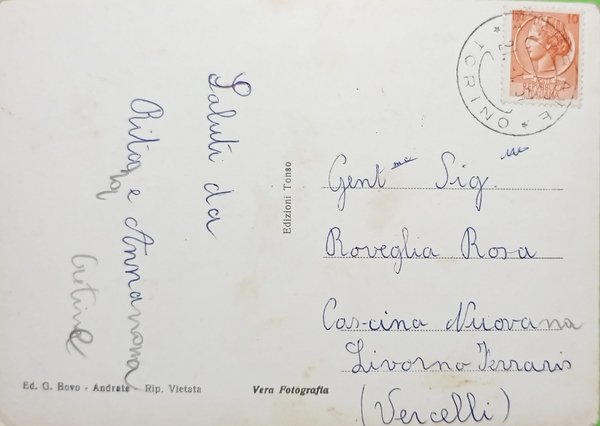 Saluti da
Rita e Annamaria
Edizioni Tonso
Gent.me Sig.me
Roveglia Rosa
Cascina Nuova
Livorno Ferraris
(Vercelli)
Ed. G. Bovo - Andrate - Rip. Vietata
Vera Fotografia
10
TORINO